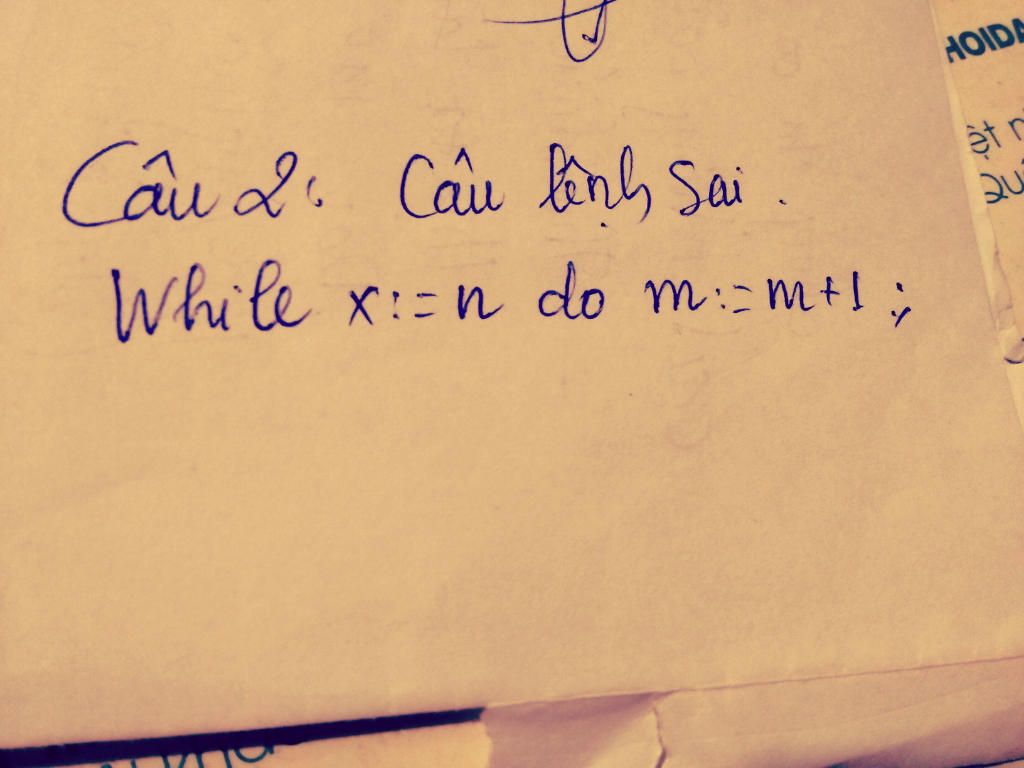 Câu 2: Câu lệnh sai.
While x:=n do m:=m+1;
HOIDA
ệt n
Quý